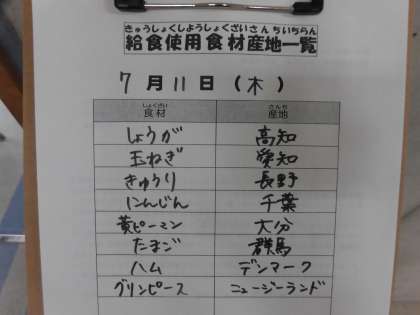 きゅうしょくしようしょくざいさんちいちらん
給食使用食材産地一覧
7月11日(木)
しょくざい さんち
食材 産地
しょうが 高知
玉ねぎ 愛知
きゅうり 長野
にんじん 千葉
黄ピーマン 大分
たまご 群馬
ハム デンマーク
グリンピース ニュージーランド